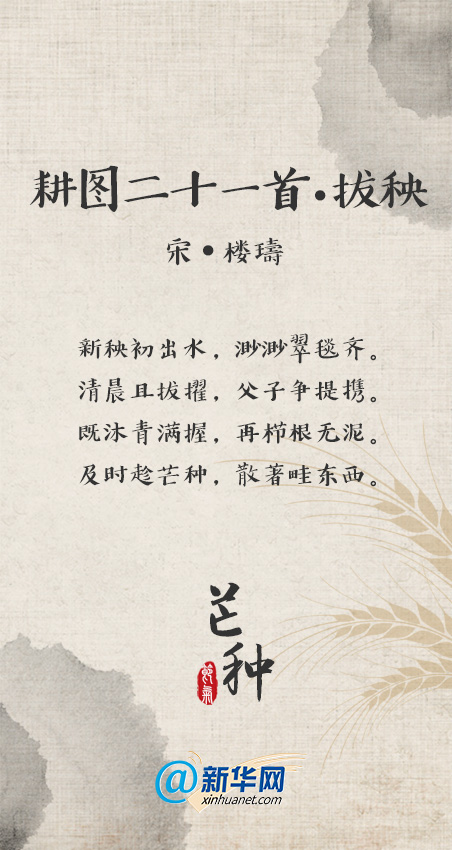 耕图二十一首·拔秧
宋·楼璹
新秧初出水，渺渺翠毯齐。
清晨且拔擢，父子争提携。
既沐青满握，再栉根无泥。
及时趁芒种，散著畦东西。
芒种
节气
@新华网
xinhuanet.com